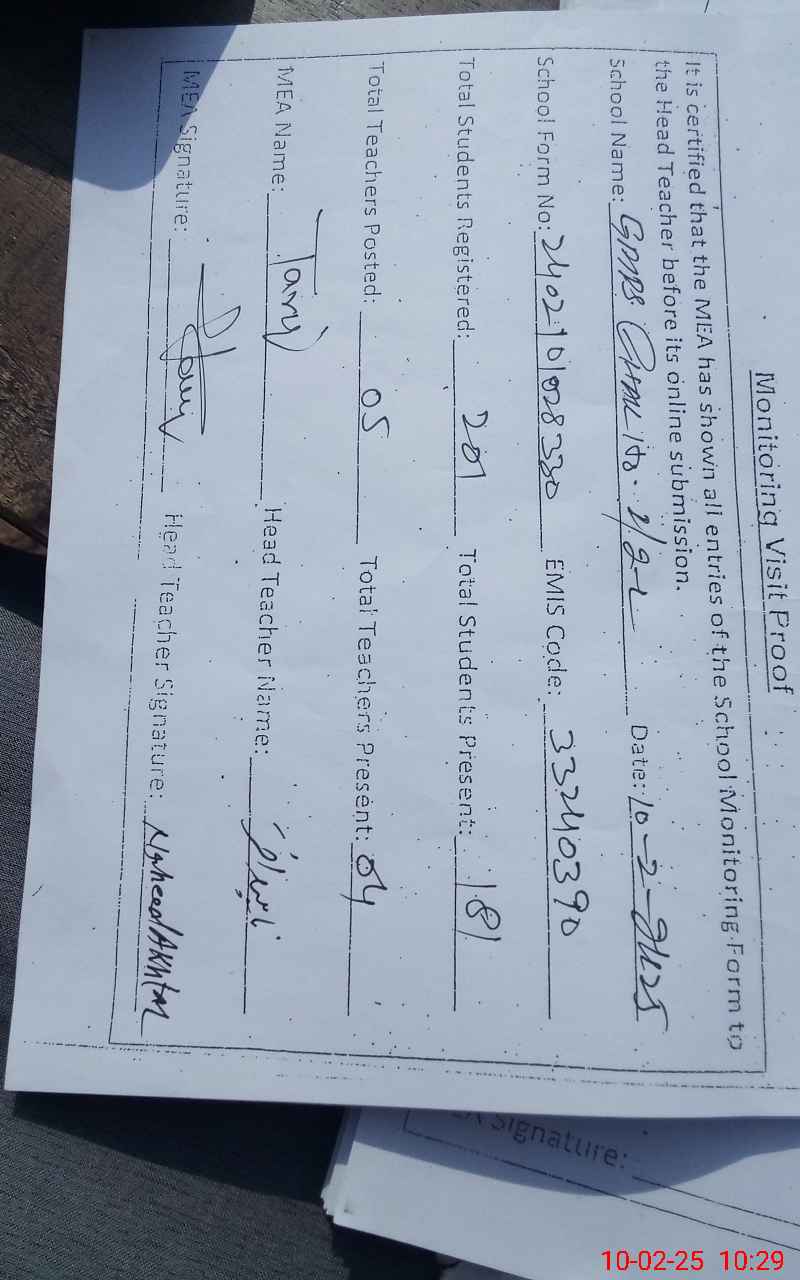 Monitoring Visit Proof
It is certified that the MEA has shown all entries of the School Monitoring Form to
the Head Teacher before its online submission.
School Name: Date: 10-2-2025
School Form No: EMIS Code: 33240390
Total Students Registered: 201 Total Students Present: 181
Total Teachers Posted: 05 Total Teachers Present: 04
MEA Name: Head Teacher Name:
MEA Signature: Head Teacher Signature: Naheed Akhtar
Signature:
10-02-25 10:29